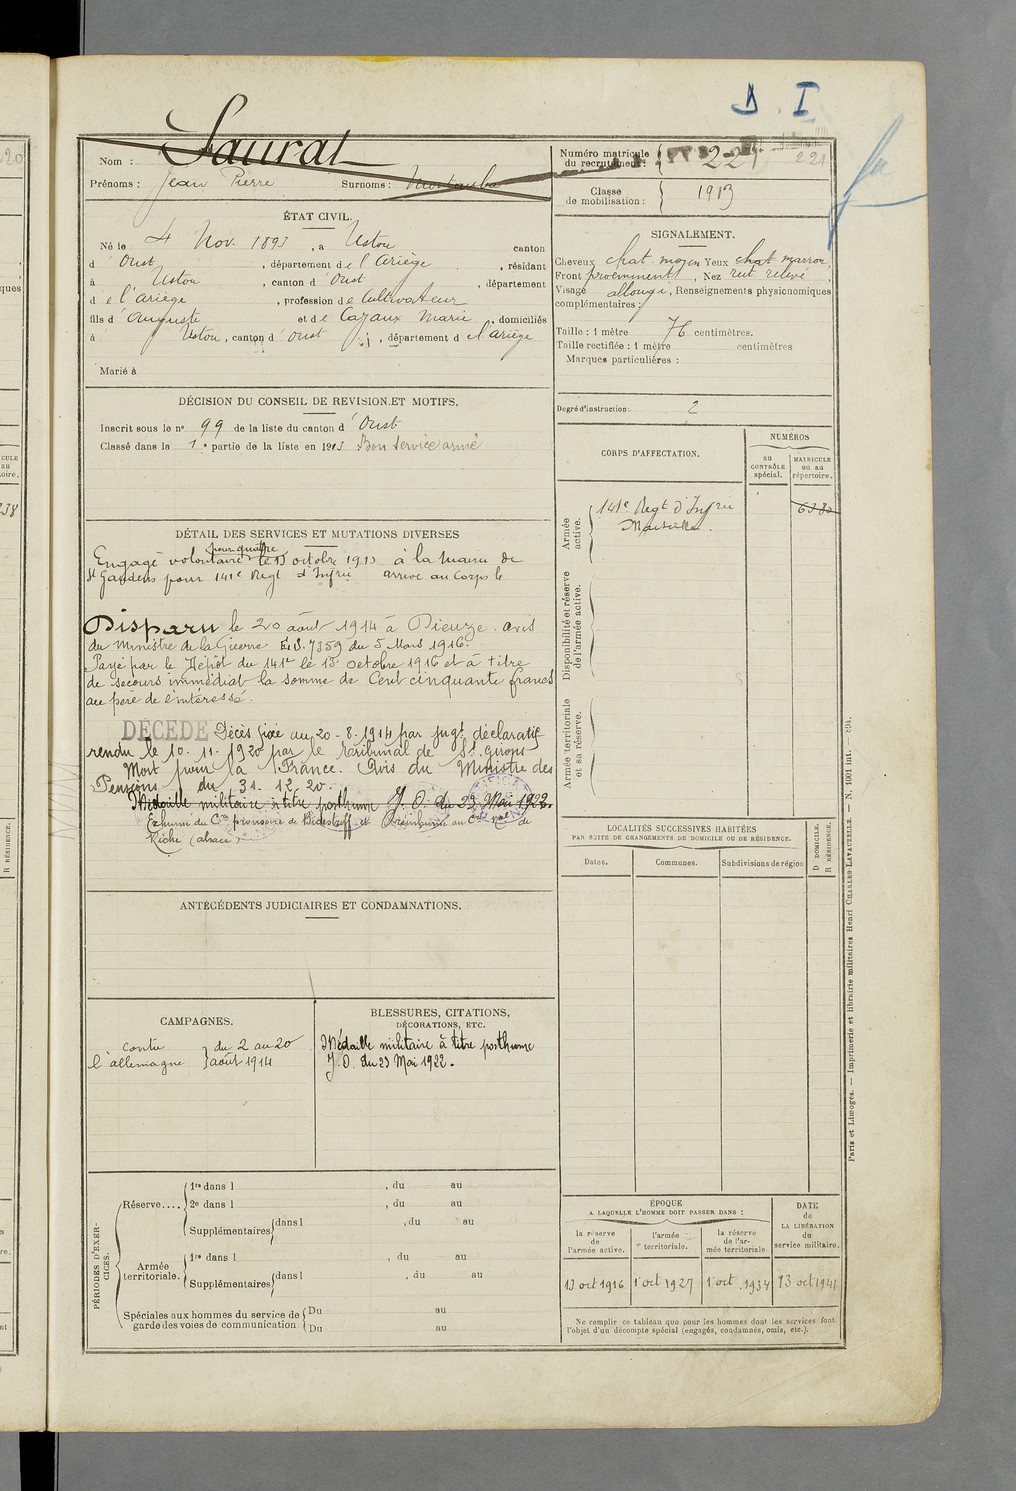 D. I
Nom : Saurat
Prénoms : Jean Pierre Surnoms :
Numéro matricule du recrutement : 221
221
Classe de mobilisation : 1913
ÉTAT CIVIL.
Né le 4 Nov. 1893, à Ustou canton
d'Oust, département de l'Ariège, résidant
à Ustou, canton d'Oust, département
de l'Ariège, profession de Cultivateur
fils d'Auguste et de Cazaux Marie, domiciliés
à Ustou, canton d'Oust, département de l'Ariège
Marié à
SIGNALEMENT.
Cheveux chat. moyen Yeux chat marron,
Front proéminent, Nez rect. relevé,
Visage allongé, Renseignements physionomiques
complémentaires :
Taille : 1 mètre 76 centimètres.
Taille rectifiée : 1 mètre centimètres
Marques particulières :
Degré d'instruction : 2
DÉCISION DU CONSEIL DE REVISION ET MOTIFS.
Inscrit sous le n° 99 de la liste du canton d'Oust
Classé dans la 1e partie de la liste en 1913 Bon service armé
DÉTAIL DES SERVICES ET MUTATIONS DIVERSES
pour quatre
Engagé volontaire le 13 octobre 1913 à la mairie de
St Gaudens pour 141e Regt d'Infrie arrivé au Corps le
Disparu le 20 août 1914 à Dieuze. avis
du Ministre de la Guerre E.S. 7359 du 5 Mars 1916.
Payé par le Dépôt du 141e le 18 octobre 1916 et à titre
de secours immédiat la somme de Cent cinquante francs
au père de l'intéressé.
DÉCÉDÉ Décès fixé au 20-8-1914 par jugt déclaratif
rendu le 10.11.1920 par le Tribunal de St Girons
Mort pour la France. Avis du Ministre des
Pensions du 31.12.20.
Médaille militaire à titre posthume J.O. du 23 Mai 1922.
Exhumé du Cre provisoire de et réinhumé au Cre nal de
(alsace)
ANTÉCÉDENTS JUDICIAIRES ET CONDAMNATIONS.
CAMPAGNES.
contre l'allemagne } du 2 au 20 août 1914
BLESSURES, CITATIONS,
DÉCORATIONS, ETC.
Médaille militaire à titre posthume
J.O. du 23 Mai 1922.
PÉRIODES D'EXERCICES.
Réserve....
1re dans l , du au
2e dans l , du au
Supplémentaires dans l , du au
Armée territoriale.
1re dans l , du au
Supplémentaires dans l , du au
Spéciales aux hommes du service de
garde des voies de communication
Du au
Du au
CORPS D'AFFECTATION.
NUMÉROS
au CONTRÔLE spécial.
MATRICULE ou au répertoire.
Armée active.
141e Regt d'Infrie
Marseille.
6380
Disponibilité et réserve de l'armée active.
Armée territoriale et sa réserve.
LOCALITÉS SUCCESSIVES HABITÉES
PAR SUITE DE CHANGEMENTS DE DOMICILE OU DE RÉSIDENCE.
Dates.
Communes.
Subdivisions de région
D DOMICILE.
R RÉSIDENCE.
ÉPOQUE
A LAQUELLE L'HOMME DOIT PASSER DANS :
la réserve de l'armée active.
l'armée territoriale.
la réserve de l'armée territoriale
DATE de LA LIBÉRATION du service militaire.
13 oct 1916
1 oct 1927
1 oct 1934
13 oct 1941
Ne remplir ce tableau que pour les hommes dont les services font
l'objet d'un décompte spécial (engagés, condamnés, omis, etc.).
Paris et Limoges. — Imprimerie et librairie militaires Henri CHARLES-LAVAUZELLE. — N. 1001 int. - 894.